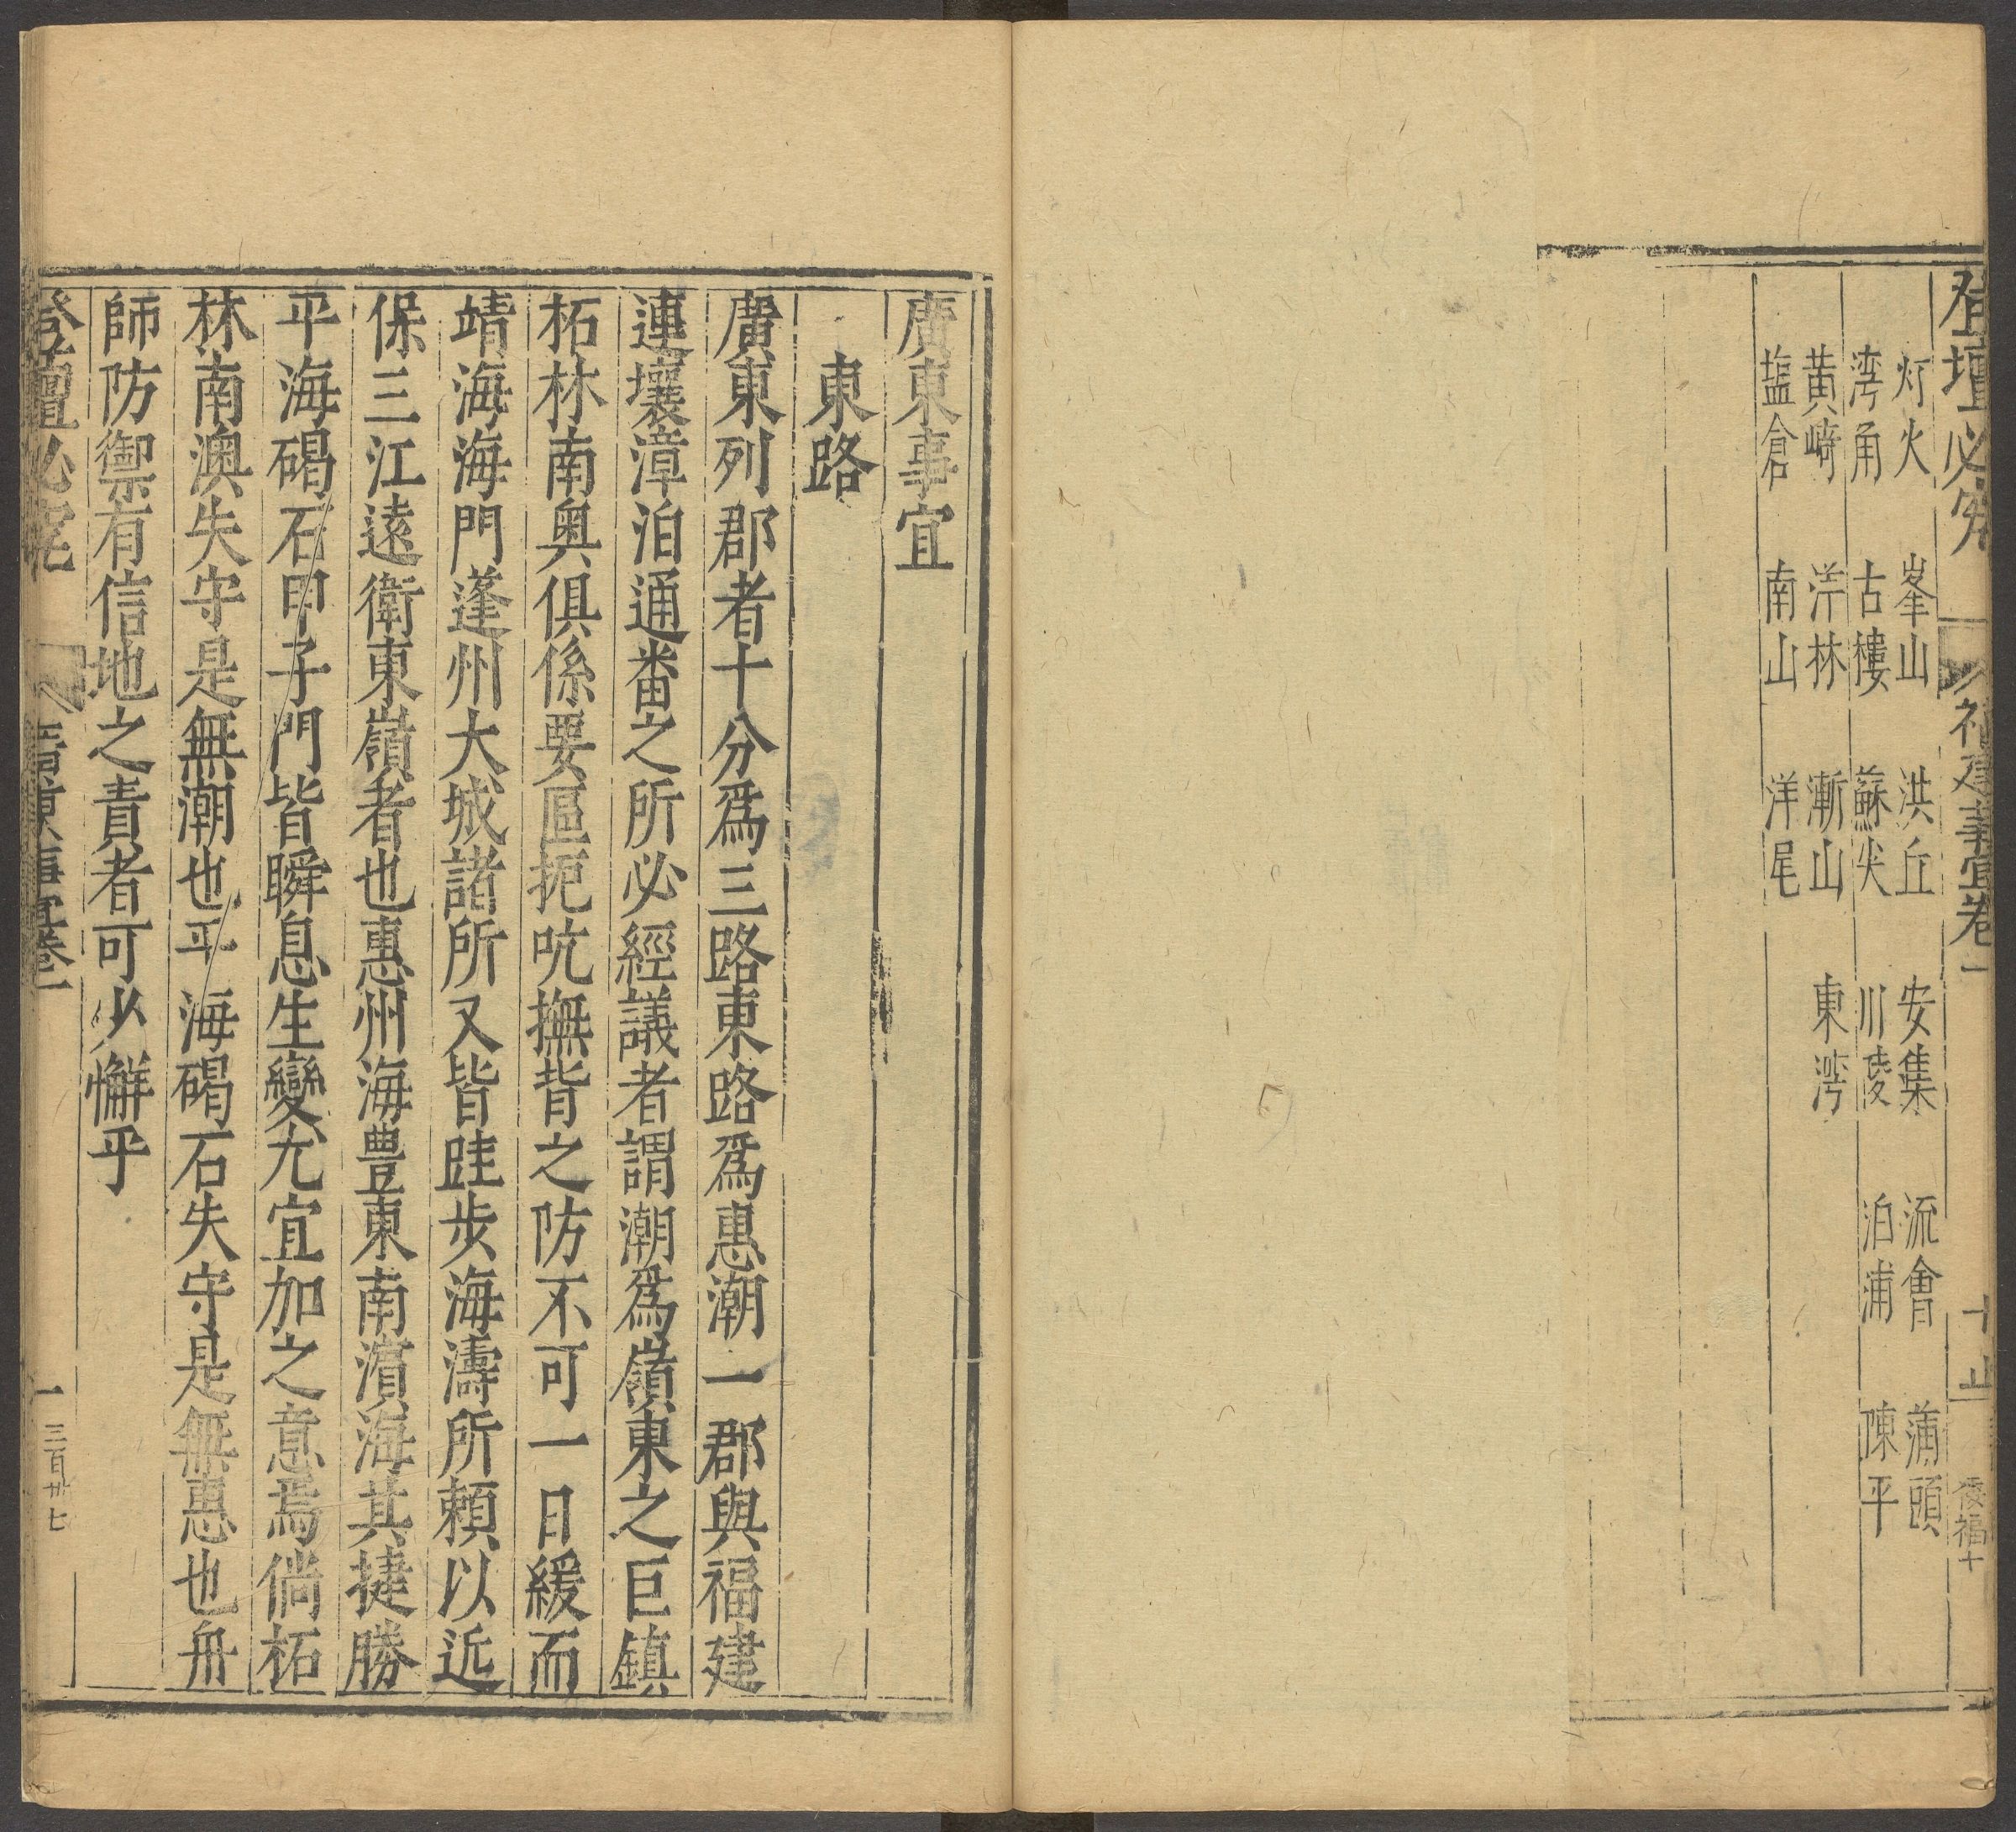 登壇必究
福建事宜卷一
十止
倭福十
灯火 峯山 洪丘 安集 流會 蒲頭
湾角 古樓 蘇尖 川陵 泊浦 陳平
黃崎 洋林 漸山 東湾
盐倉 南山 洋尾
廣東事宜
東路
廣東列郡者十分爲三路東路爲惠潮一郡與福建
連壤漳泊通番之所必經議者謂潮爲嶺東之巨鎮
柘林南奧俱係要區扼吭撫背之防不可一日緩而
靖海海門蓬州大城諸所又皆跬步海濤所賴以近
保三江遠衛東嶺者也惠州海豊東南濵海其捷勝
平海碣石甲子門皆瞬息生變尤宜加之意焉倘柘
林南澳失守是無潮也平海碣石失守是無惠也舟
師防禦有信地之責者可少懈乎
登壇必究
廣東事宜卷一
一
三百卅七